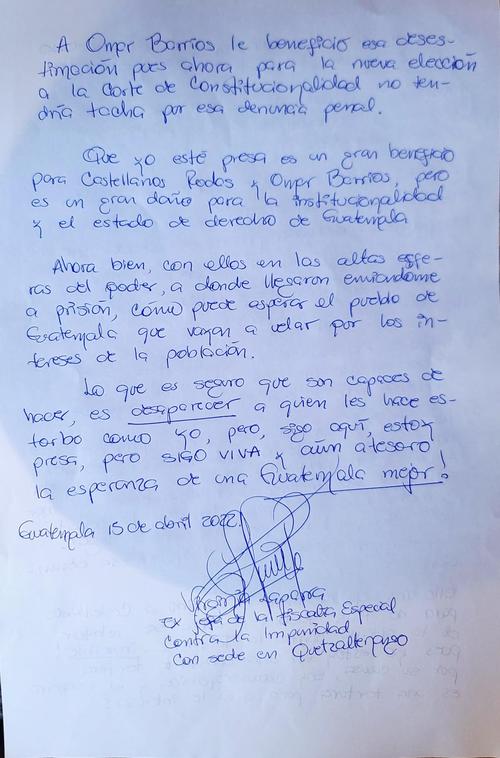 A Omar Barrios le benefició esa deses-
timación pues ahora para la nueva elección
a la Corte de Constitucionalidad no ten-
dría tacha por esa denuncia penal.
Que yo esté presa es un gran beneficio
para Castellanos Rodas y Omar Barrios, pero
es un gran daño para la institucionalidad
y el estado de derecho de Guatemala
Ahora bien, con ellos en las altas esfe-
ras del poder, a donde llegaron enviándome
a prisión, cómo puede esperar el pueblo de
Guatemala que vayan a velar por los in-
tereses de la población.
Lo que es seguro que son capaces de
hacer, es desaparecer a quien les hace es-
torbo como yo, pero, sigo aquí, estoy
presa, pero SIGO VIVA y aún atesoro
la esperanza de una Guatemala mejor!
Guatemala 15 de abril 2022.
Virginia Laparra
Ex jefa de la Fiscalía Especial
Contra la Impunidad
Con sede en Quetzaltenango